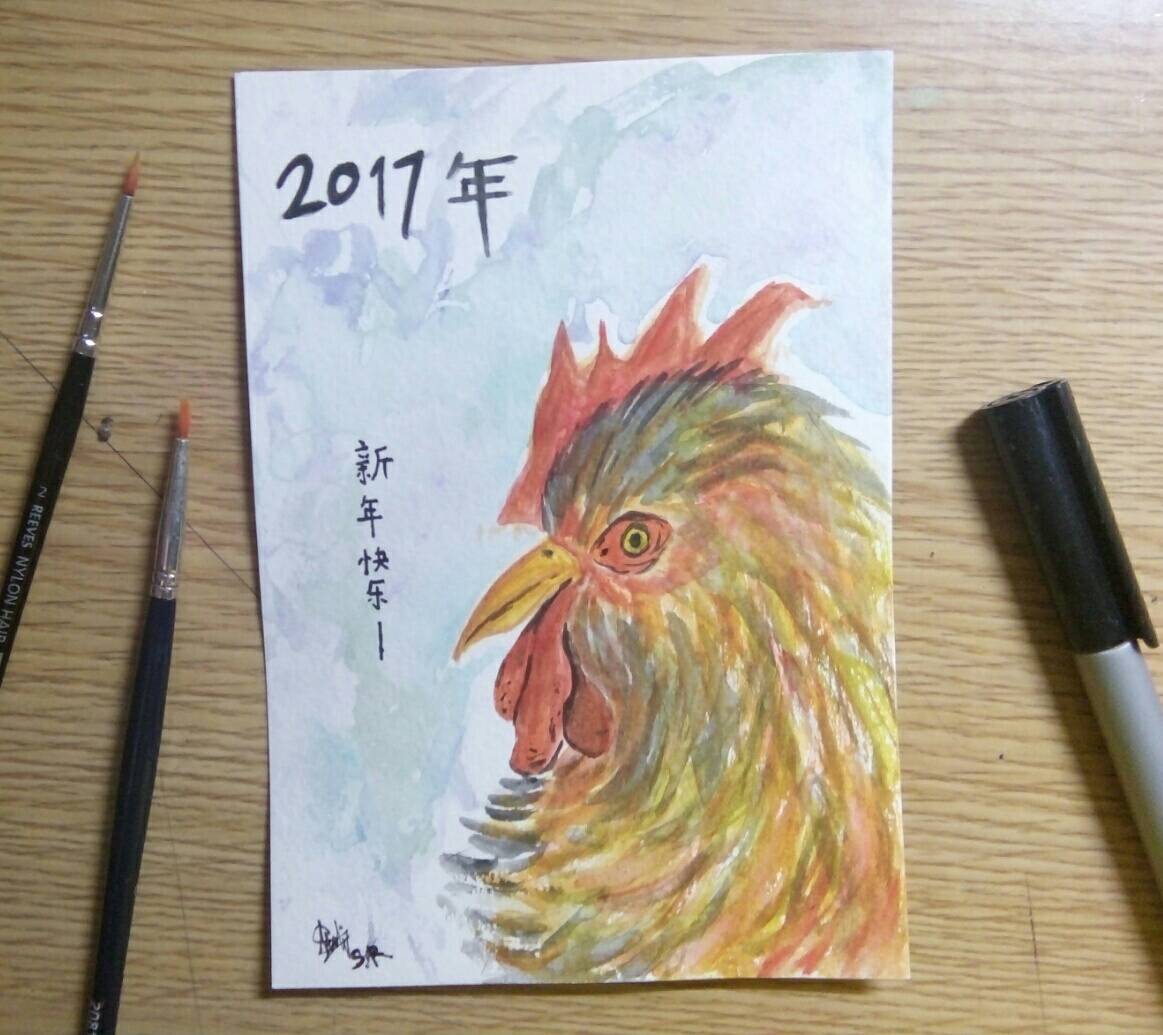 2017年
新年快乐！
~ REEVES NYLON HAIR